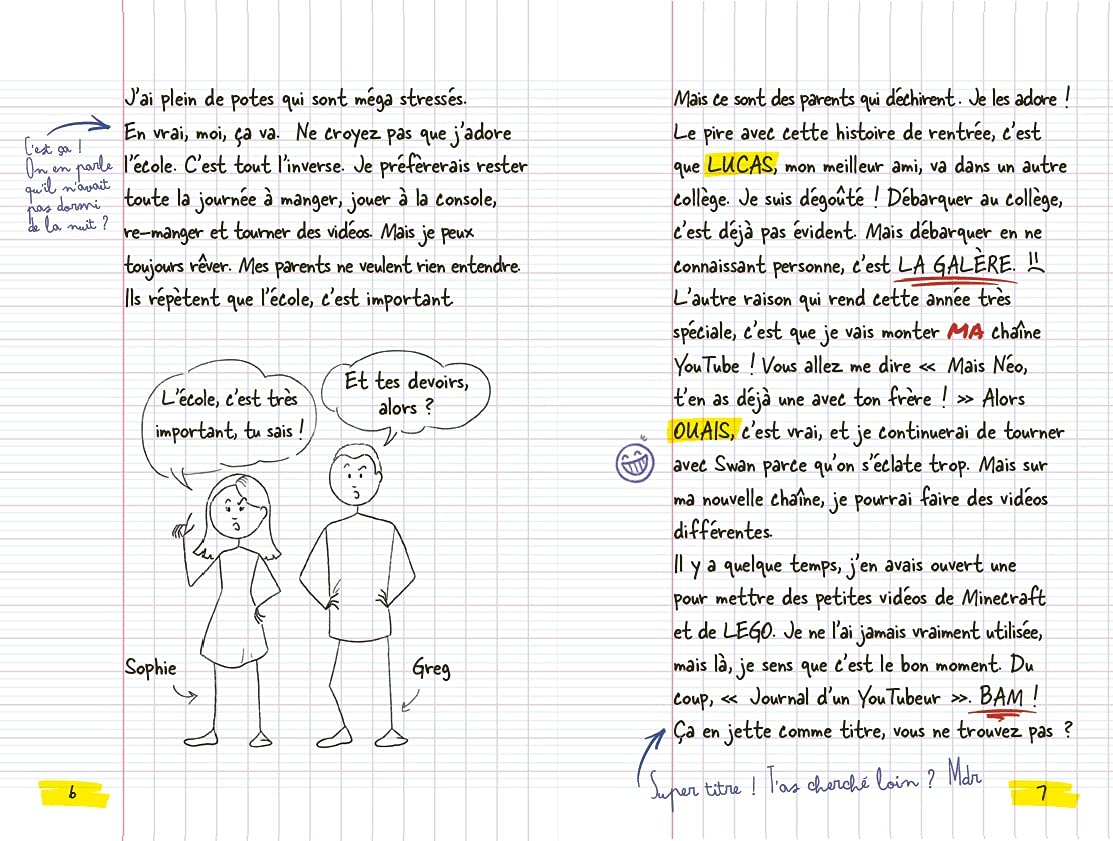 J'ai plein de potes qui sont méga stressés.
En vrai, moi, ça va. Ne croyez pas que j'adore
l'école. C'est tout l'inverse. Je préfèrerais rester
toute la journée à manger, jouer à la console,
re-manger et tourner des vidéos. Mais je peux
toujours rêver. Mes parents ne veulent rien entendre.
Ils répètent que l'école, c'est important
C'est ça !
On en parle
qu'il n'avait
pas dormi
de la nuit ?
L'école, c'est très
important, tu sais !
Et tes devoirs,
alors ?
Sophie
Greg
6
Mais ce sont des parents qui déchirent. Je les adore !
Le pire avec cette histoire de rentrée, c'est
que LUCAS, mon meilleur ami, va dans un autre
collège. Je suis dégoûté ! Débarquer au collège,
c'est déjà pas évident. Mais débarquer en ne
connaissant personne, c'est LA GALÈRE.
L'autre raison qui rend cette année très
spéciale, c'est que je vais monter MA chaîne
YouTube ! Vous allez me dire « Mais Néo,
t'en as déjà une avec ton frère ! » Alors
OUAIS, c'est vrai, et je continuerai de tourner
avec Swan parce qu'on s'éclate trop. Mais sur
ma nouvelle chaîne, je pourrai faire des vidéos
différentes.
Il y a quelque temps, j'en avais ouvert une
pour mettre des petites vidéos de Minecraft
et de LEGO. Je ne l'ai jamais vraiment utilisée,
mais là, je sens que c'est le bon moment. Du
coup, « Journal d'un YouTubeur ». BAM !
Ça en jette comme titre, vous ne trouvez pas ?
Super titre ! T'as cherché loin ? Mdr
7